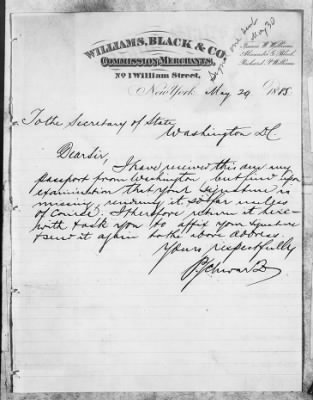 Signed one sent
May 30
WILLIAMS, BLACK & CO.
COMMISSION MERCHANTS,
No 1 William Street,
Frank W. Williams
Alexander G. Black
Richard P. Williams
New York May 29 188
To the Secretary of State,
Washington DC
Dear Sir,
I have received this day my
passport from Washington but find upon
examination that your signature is
missing, rendering it so far useless
of course. I therefore return it here-
with & ask you to affix your signature
& send it again to the above address.
Yours respectfully
P. Schwarz